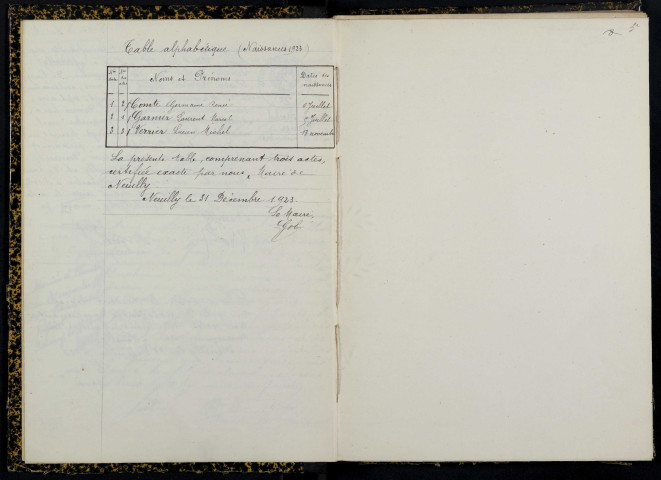 Table alphabétique (Naissances 1923)
Noms et Prénoms
Dates des naissances
1 2 Comte Germaine 6 Juillet
2 1 Garnier Laurent 5 Juillet
3 3 Verrier Lucien Michel 13 novembre
La présente table, comprenant trois actes,
certifiée exacte par nous, Maire de
Neuilly
Neuilly le 31 Décembre 1923.
Le Maire,
5